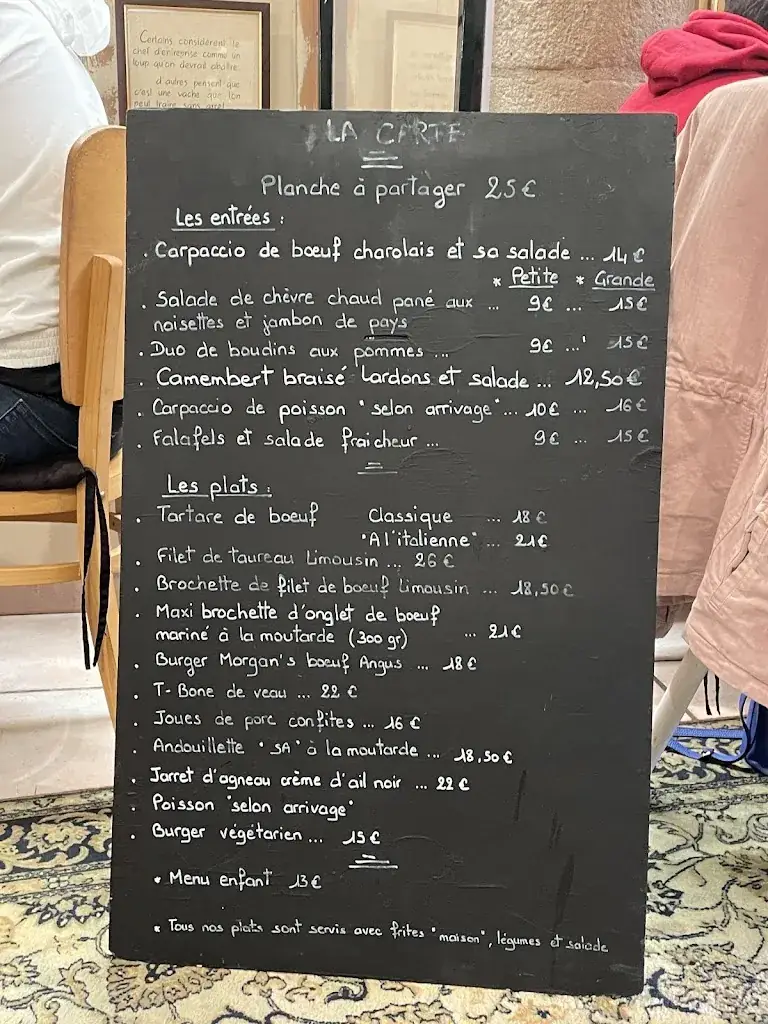 Certains considèrent le
chef d'entreprise comme un
loup qu'on devrait abattre.
d'autres pensent que
c'est une vache que l'on
peut traire sans arrêt
LA CARTE
Planche à partager 25€
Les entrées :
. Carpaccio de bœuf charolais et sa salade ... 14 €
* Petite * Grande
. Salade de chèvre chaud pané aux ... 9€ ... 15€
noisettes et jambon de pays
. Duo de boudins aux pommes ... 9€ ... 15€
. Camembert braisé lardons et salade ... 12,50€
. Carpaccio de poisson "selon arrivage"... 10€ ... 16€
. Falafels et salade fraicheur ... 9€ ... 15€
Les plats :
. Tartare de bœuf Classique ... 18 €
"A l'italienne" ... 21€
. Filet de taureau Limousin ... 26 €
. Brochette de filet de bœuf Limousin ... 18,50€
. Maxi brochette d'onglet de bœuf
mariné à la moutarde (300 gr) ... 21€
. Burger Morgan's bœuf Angus ... 18€
. T-Bone de veau ... 22 €
. Joues de porc confites ... 16 €
. Andouillette "5A" à la moutarde ... 18,50€
. Jarret d'agneau crème d'ail noir ... 22€
. Poisson "selon arrivage"
. Burger végétarien ... 15€
* Menu enfant 13€
* Tous nos plats sont servis avec frites "maison", légumes et salade